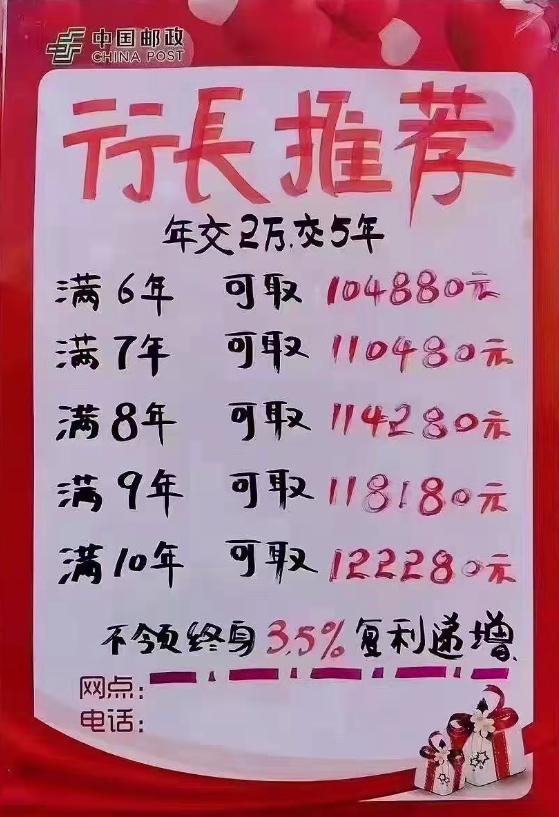 中国邮政
CHINA POST
行長推荐
年交2万.交5年
满6年 可取 104880元
满7年 可取 110480元
满8年 可取 114280元
满9年 可取 118180元
满10年 可取 122280元
不领终身3.5%复利递增
网点：
电话：